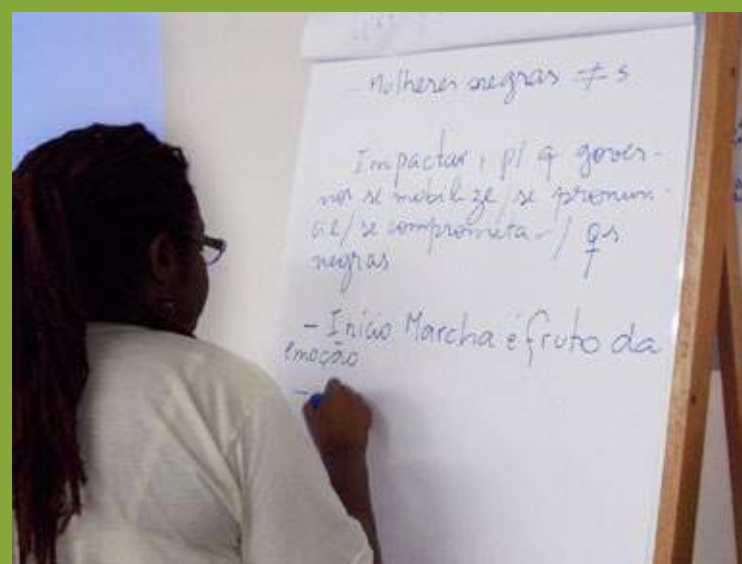 Mulheres negras ≠s
Impactar, p/ q gover-
nos se mobilize/se pronun-
cie/se comprometa-/ ♀s
negras
- Início Marcha é fruto da
emoção
-